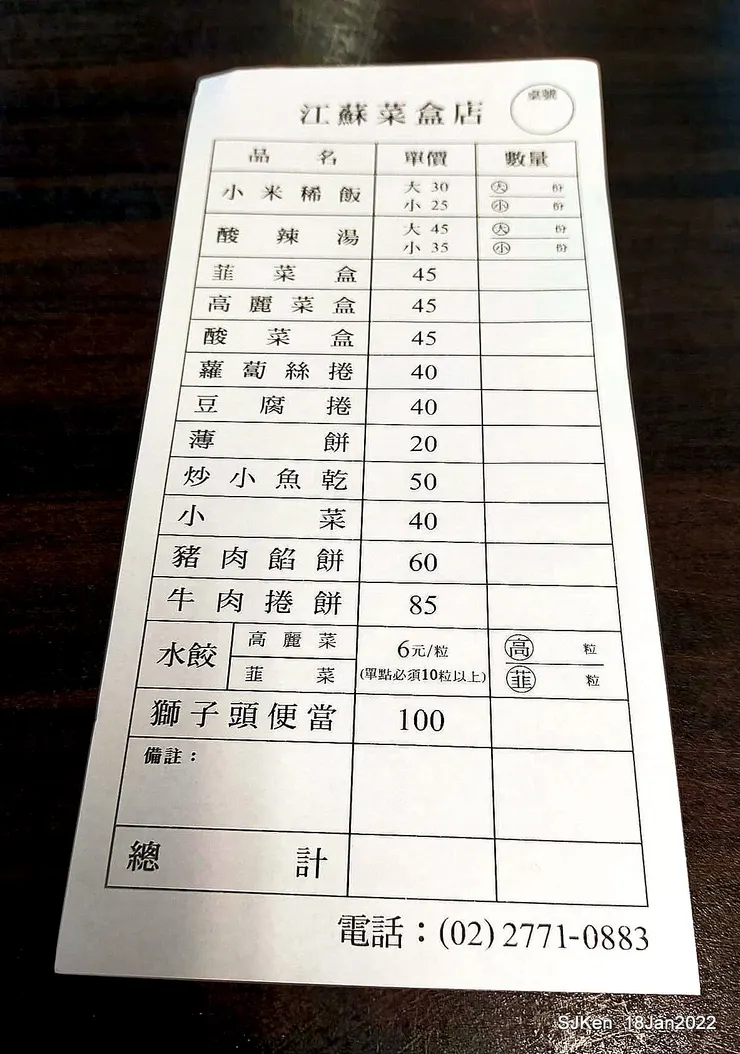 江蘇菜盒店 桌號
品名 單價 數量
小米稀飯 大 30 大 份
小 25 小 份
酸辣湯 大 45 大 份
小 35 小 份
韮菜盒 45
高麗菜盒 45
酸菜盒 45
蘿蔔絲捲 40
豆腐捲 40
薄餅 20
炒小魚乾 50
小菜 40
豬肉餡餅 60
牛肉捲餅 85
水餃 高麗菜 6元/粒 高 粒
韮菜 (單點必須10粒以上) 韮 粒
獅子頭便當 100
備註：
總計
電話：(02)2771-0883
SJKen 18Jan2022